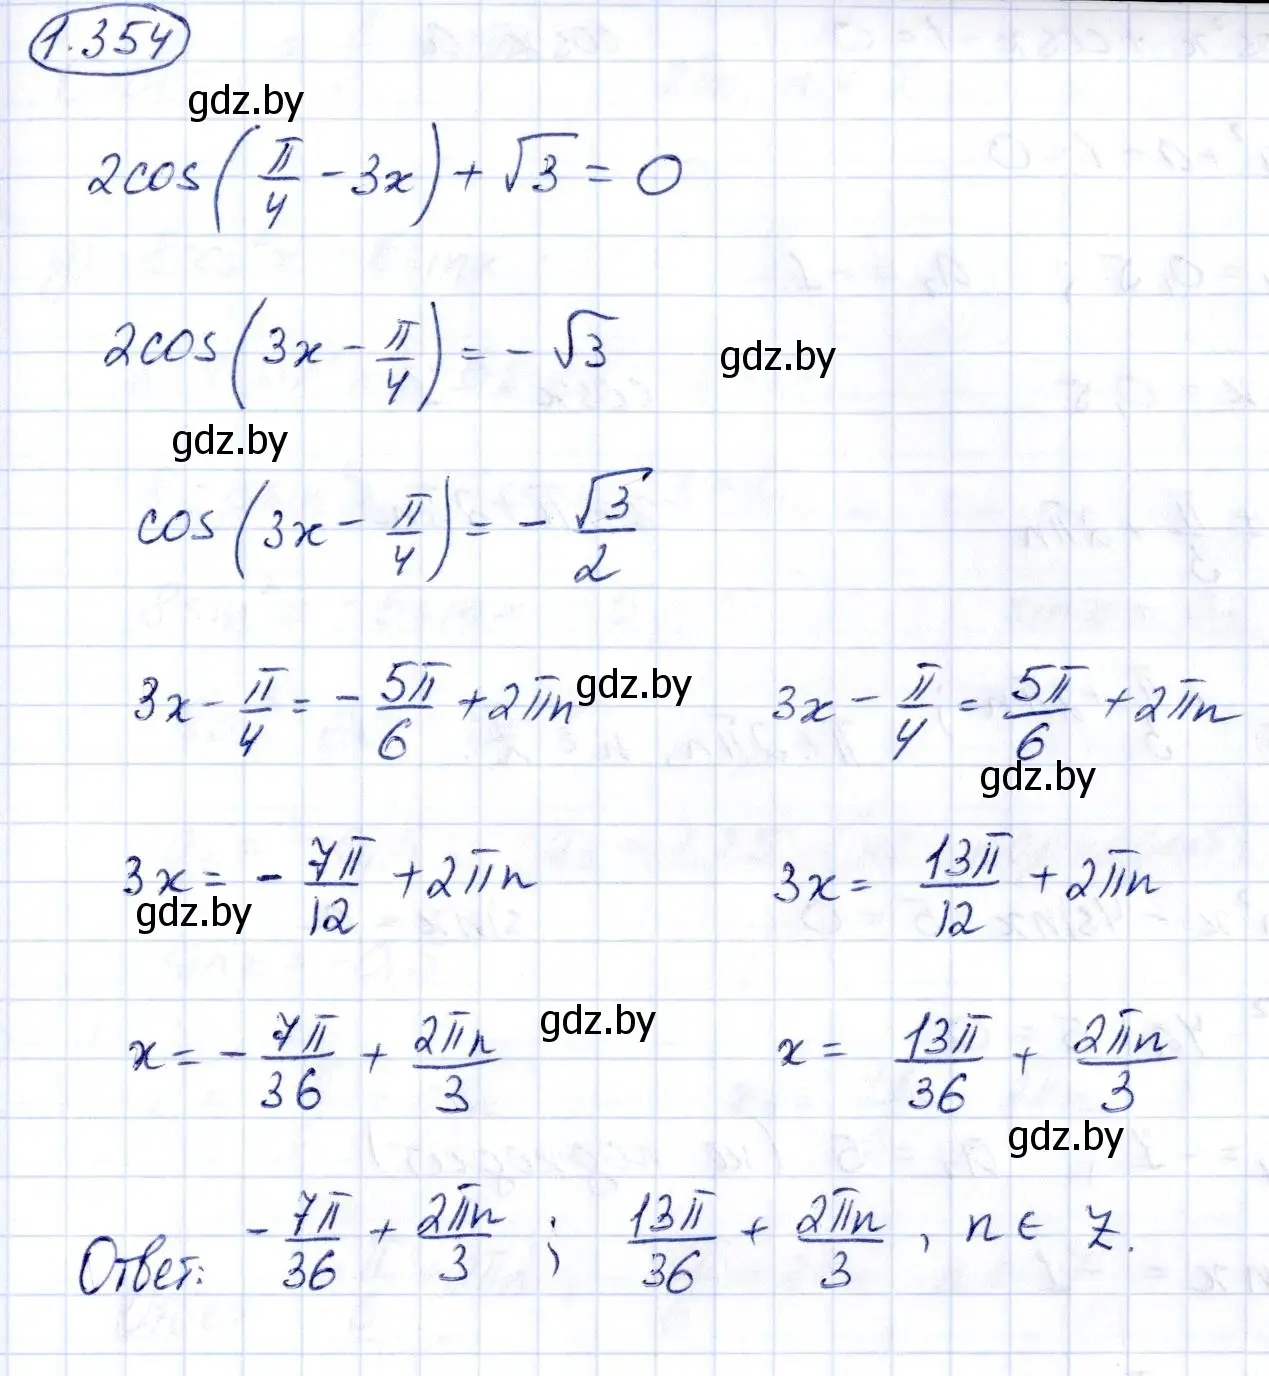 1.354
gdz.by
2cos(π/4 - 3x) + √3 = 0
2cos(3x - π/4) = - √3
gdz.by
gdz.by
cos(3x - π/4) = - √3/2
3x - π/4 = - 5π/6 + 2πn gdz.by 3x - π/4 = 5π/6 + 2πn
gdz.by
3x = - 7π/12 + 2πn 3x = 13π/12 + 2πn
gdz.by
x = - 7π/36 + 2πn/3 gdz.by x = 13π/36 + 2πn/3
gdz.by
Ответ: - 7π/36 + 2πn/3 ; 13π/36 + 2πn/3 , n ∈ Z.